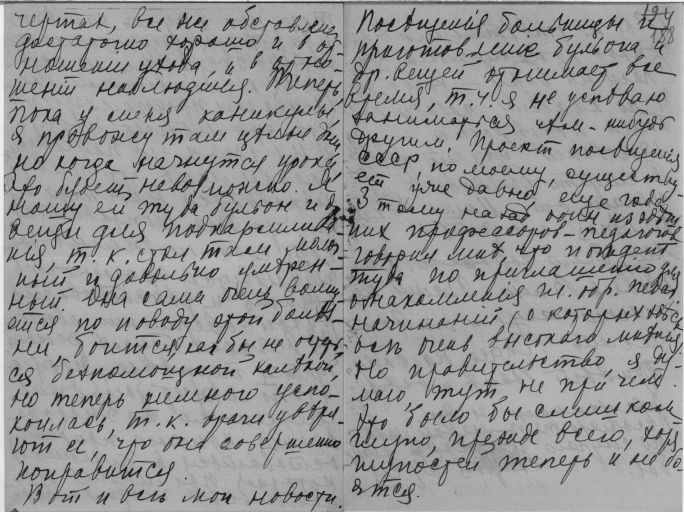 чертах, все же обставлено
достаточно хорошо и в от-
ношении ухода, и в отно-
шении наблюдения. Теперь,
пока у меня каникулы,
я провожу там целые дни,
но когда начнутся уроки,
это будет невозможно. Я
ношу ей туда бульон и др.
вещи для подкармлива-
ния, т.к. стол там
и довольно умерен-
ный. Она сама очень волну-
ется по поводу этой болез-
ни, боится, как бы не остать-
ся беспомощной калекой,
но теперь немного успо-
коилась, т.к. врачи уверя-
ют ее, что она совершенно
поправится.
Вот и все мои новости.
194
188
Посещения больницы и
приготовление бульона и
др. вещей отнимает все
время, т.ч. я не успеваю
заниматься чем-нибудь
другим. Проект посещения
СССР, по моему, существу-
ет уже давно, еще года
3 тому назад один из здеш-
них профессоров-педагогов
говорил мне, что поедет
туда по приглашению для
ознакомления
начинаний, о которых
очень высокого мнения.
Но правительство, я ду-
маю, тут не при чем.
Это было бы слишком
глупо, прежде всего, хотя
глупостей теперь и не бо-
ятся.